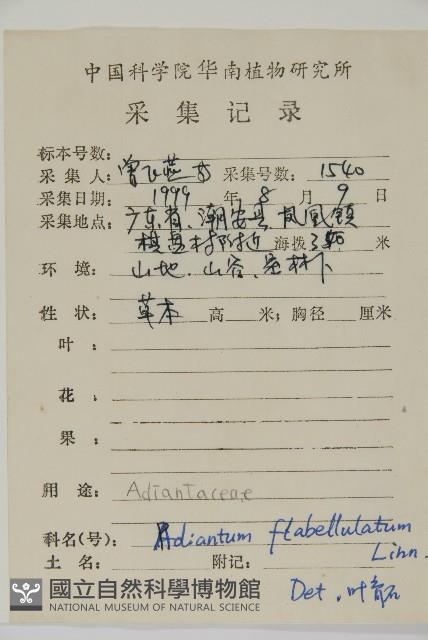 中国科学院华南植物研究所
采集记录
标本号数:
采集人: 曾飞燕 采集号数: 1540
采集日期: 1999 年 8 月 9 日
采集地点: 广东省、潮安县、凤凰镇
棋盘村附近 海拔 米
环境: 山地、山谷、密林下
性状: 草本 高 米; 胸径 厘米
叶:
花:
果:
用途: Adiantaceae
科名(号): Adiantum flabellulatum
土名: 附记: Linn.
Det. 叶育石
國立自然科學博物館
NATIONAL MUSEUM OF NATURAL SCIENCE